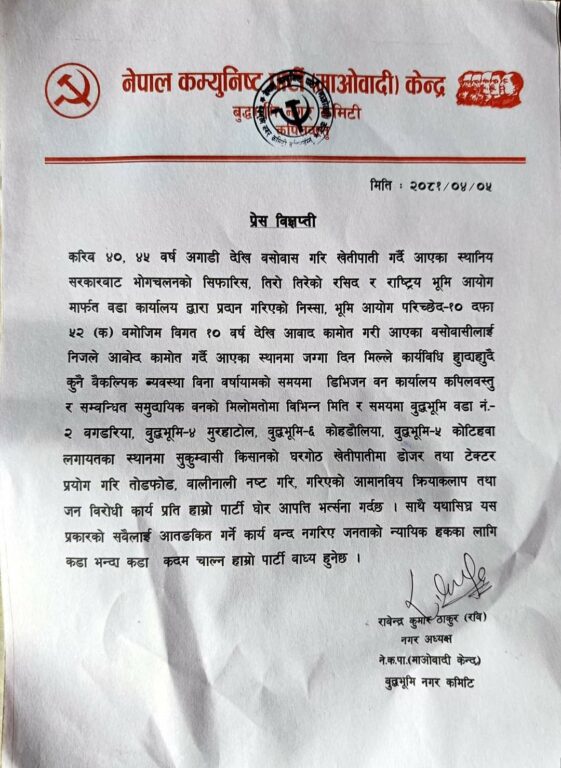 नेपाल कम्युनिष्ट पार्टी (माओवादी) केन्द्र
बुद्धभूमि नगर कमिटी
कपिलवस्तु
मिति : २०८१/०४/०५
प्रेस विज्ञप्ती
करिब ४०, ४५ वर्ष अगाडी देखि बसोवास गरि खेतीपाती गर्दै आएका स्थानिय
सरकारबाट भोगचलनको सिफारिस, तिरो तिरेको रसिद र राष्ट्रिय भूमि आयोग
मार्फत वडा कार्यालय द्वारा प्रदान गरिएको निस्सा, भूमि आयोग परिच्छेद-१० दफा
५२ (क) बमोजिम विगत १० वर्ष देखि आवाद कामोत गरी आएका बसोवासीलाई
निजले आवोद कामोत गर्दै आएका स्थानमा जग्गा दिन मिल्ने कार्यविधि हुादाहुादै
कुनै बैकल्पिक ब्यवस्था विना वर्षायामको समयमा डिभिजन वन कार्यालय कपिलवस्तु
र सम्वन्धित समुदायिक वनको मिलोमतोमा विभिन्न मिति र समयमा बुद्धभूमि वडा नं.-
२ बगडरिया, बुद्धभूमि-४ मुरहाटोल, बुद्धभूमि-६ कोहडौलिया, बुद्धभूमि-५ कोटिहवा
लगायतका स्थानमा सुकुम्वासी किसानको घरगोठ खेतीपातीमा डोजर तथा टेक्टर
प्रयोग गरि तोडफोड, बालीनाली नष्ट गरि, गरिएको आमानविय क्रियाकलाप तथा
जन विरोधी कार्य प्रति हाम्रो पार्टी घोर आपत्ति भर्त्सना गर्दछ । साथै यथासिघ्र यस
प्रकारको सबैलाई आतङकित गर्ने कार्य बन्द नगरिए जनताको न्यायिक हकका लागि
कडा भन्दा कडा कदम चाल्न हाम्रो पार्टी बाध्य हुनेछ ।
रावेन्द्र कुमार ठाकुर (रवि)
नगर अध्यक्ष
ने.क.पा.(माओवादी केन्द्र)
बुद्धभूमि नगर कमिटि